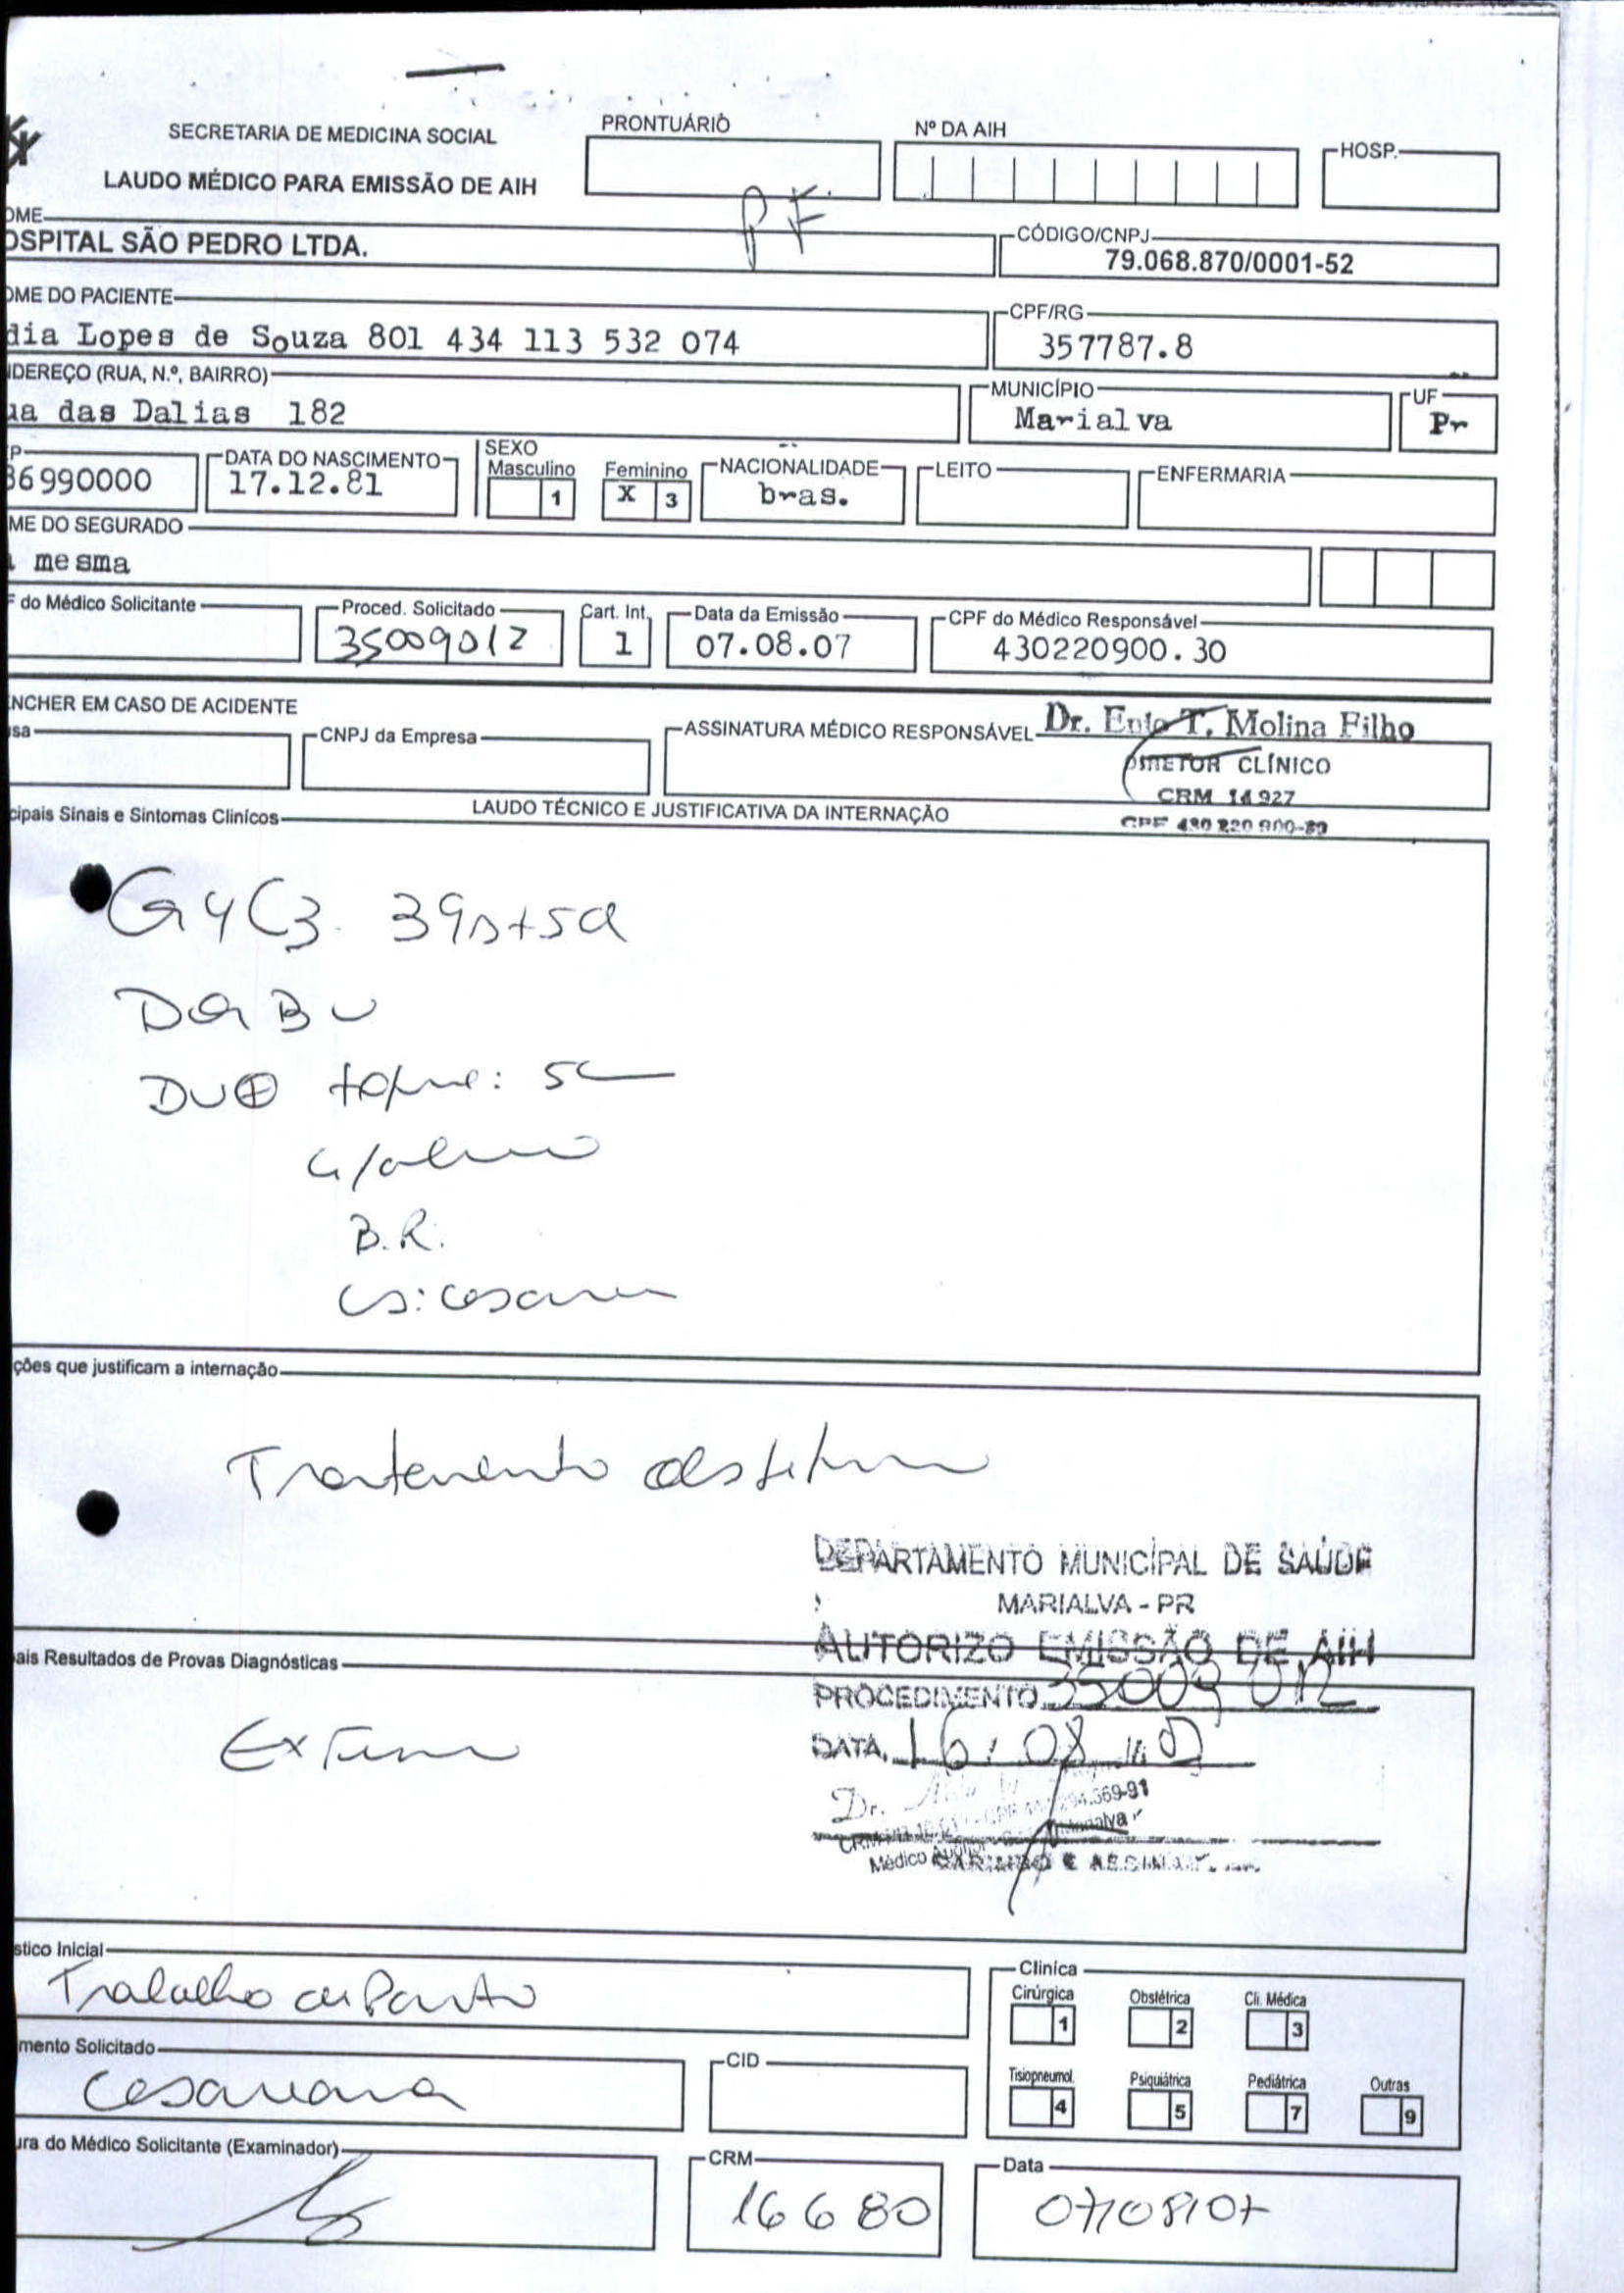 SECRETARIA DE MEDICINA SOCIAL
LAUDO MÉDICO PARA EMISSÃO DE AIH
PRONTUÁRIO
Nº DA AIH
HOSP.
PF
OME
OSPITAL SÃO PEDRO LTDA.
CÓDIGO/CNPJ
79.068.870/0001-52
OME DO PACIENTE
dia Lopes de Souza 801 434 113 532 074
CPF/RG
357787.8
NDEREÇO (RUA, N.º, BAIRRO)
ua das Dalias 182
MUNICÍPIO
Marialva
UF
Pr
EP
86990000
DATA DO NASCIMENTO
17.12.81
SEXO
Masculino 1
Feminino X 3
NACIONALIDADE
bras.
LEITO
ENFERMARIA
ME DO SEGURADO
a mesma
F do Médico Solicitante
Proced. Solicitado
35009012
Cart. Int.
1
Data da Emissão
07.08.07
CPF do Médico Responsável
430220900.30
ENCHER EM CASO DE ACIDENTE
sa
CNPJ da Empresa
ASSINATURA MÉDICO RESPONSÁVEL
Dr. T. Molina Filho
DIRETOR CLÍNICO
CRM 14927
CPF 430 220 900-30
LAUDO TÉCNICO E JUSTIFICATIVA DA INTERNAÇÃO
cipais Sinais e Sintomas Clínicos
G4C3. 39s+5d
DU⊕ toque: 5c
B.R.
ções que justificam a internação
Tratamento
DEPARTAMENTO MUNICÍPAL DE SAÚDE
MARIALVA - PR
AUTORIZO EMISSÃO DE AIH
PROCEDIMENTO 35009012
DATA 16/08
Dr.
Médico
CARIMBO E ASSINAT
ais Resultados de Provas Diagnósticas
stico Inicial
Trabalho de Parto
Clínica
Cirúrgica 1
Obstétrica 2
Cli. Médica 3
Tisiopneumol. 4
Psiquiátrica 5
Pediátrica 7
Outras 9
mento Solicitado
Cesareana
CID
ura do Médico Solicitante (Examinador)
CRM
16680
Data
07/08/07